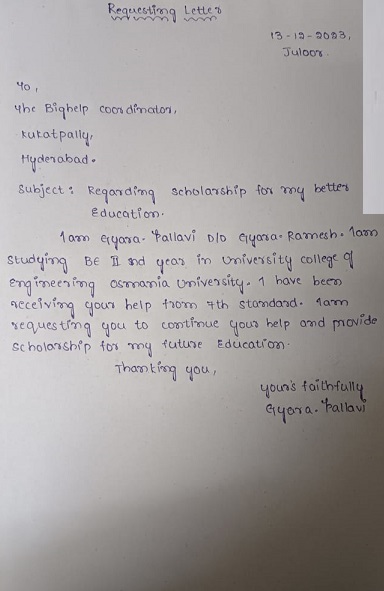 Requesting Letter
13-12-2023,
Juloor.
To,
The Bighelp coordinator,
Kukatpally,
Hyderabad.
Subject: Regarding scholarship for my better
Education.
Iam Gyara. Pallavi D/o Gyara. Ramesh. Iam
studying BE II nd year in University college of
engineering osmania University. I have been
receiving your help from 7th standard. Iam
requesting you to continue your help and provide
scholarship for my future Education.
Thanking you,
your's faithfully
Gyara. Pallavi